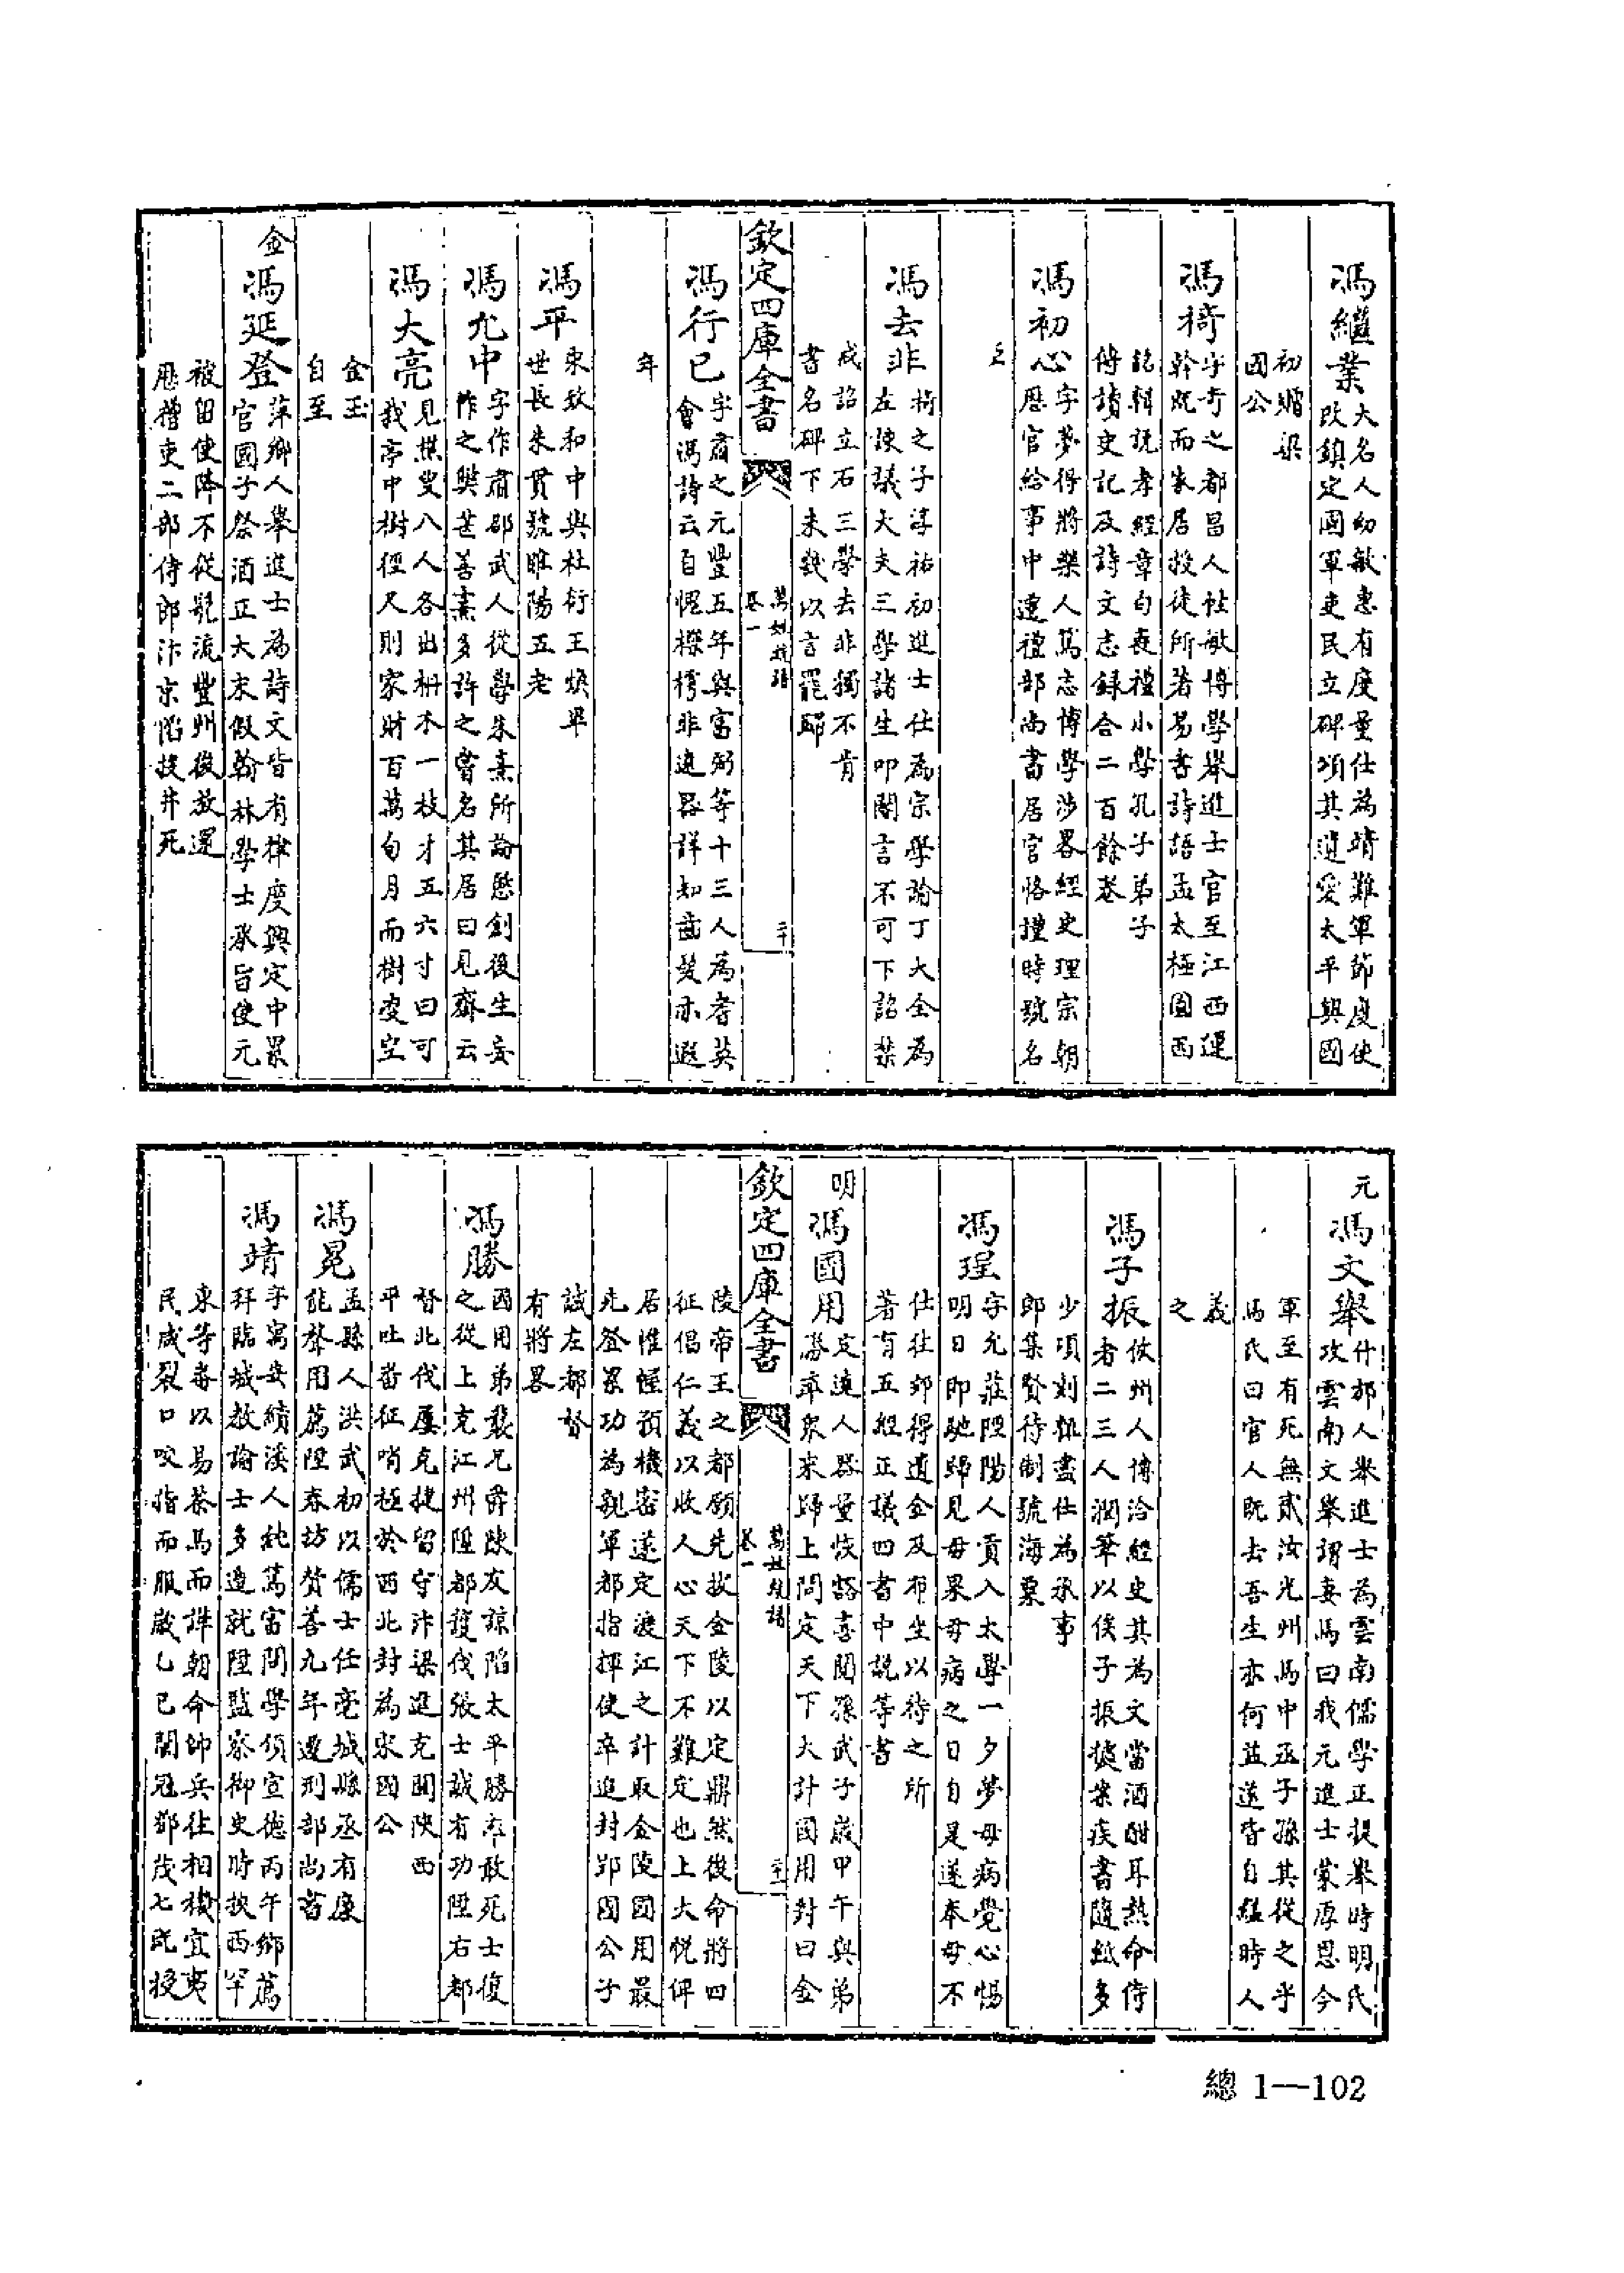 馮繼業大名人幼敏惠有度量仕為靖難軍節度使
改鎮定國軍吏民立碑頌其遺愛太平興國
初贈梁
國公
馮椅字奇之都昌人性敏博學舉進士官至江西運
幹既而家居授徒所著易書詩語孟太極圖西
銘輯說孝經章句喪禮小學孔子弟子
傳讀史記及詩文志録合二百餘卷
馮初心字夢得將樂人篤志博學涉畧經史理宗朝
歴官給事中遷禮部尚書居官恪謹時號名
馮去非椅之子淳祐初進士仕為宗學諭丁大全為
左諫議大夫三學諸生叩閽言不可下詔禁
戒詔立石三學去非獨不肯
書名碑下未幾以言罷歸
欽定四庫全書
萬姓統譜
卷一
二十
馮行已字肅之元豐五年與富弼等十三人為耆英
會馮詩云自愧櫟樗非遠器詳知齒髮亦遐
年
馮平東致和中與杜衍王煥畢
世長朱貫號睢陽五老
馮允中字作肅邵武人從學朱熹所論懲創後生妄
作之獘甚善熹多許之嘗名其居曰見齋云
馮大亮見樵叟八人各出柟木一枝才五六寸曰可
我亭中樹徑尺則家財百萬旬月而樹變空
金玉
自至
金
馮延登萍鄉人舉進士為詩文皆有律度興定中累
官國子祭酒正大末假翰林學士承旨使元
被留使降不從髡流豐州後放還
歴禮吏二部侍郎汴京陷投井死
元
馮文舉什邡人舉進士為雲南儒學正提舉時明氏
攻雲南文舉謂妻馬曰我元進士蒙厚恩今
軍至有死無貳汝光州馬中丞子孫其從之乎
馬氏曰官人既去吾生亦何益遂皆自縊時人
義
之
馮子振攸州人博洽經史其為文當酒酣耳熱命侍
者二三人潤筆以俟子振據案疾書隨紙多
少頃刻輒盡仕為承事
郎集賢待制號海粟
馮珵字允莊隉陽人貢入太學一夕夢母病覺心惕
明日即馳歸見母果母病之日自是遂奉母不
仕往邠得遺金及布坐以待之所
著有五經正議四書中說等書
明
馮國用定遠人器量恢豁喜閱孫武子歲甲午與弟
勝率衆來歸上問定天下大計國用對曰金
欽定四庫全書
萬姓統譜
卷一
二十一
陵帝王之都願先拔金陵以定鼎然後命將四
征倡仁義以收人心天下不難定也上大悅俾
居帷幄預機密遂定渡江之計取金陵國用最
先登累功為親軍都指揮使卒追封郢國公子
誠左都督
有將畧
馮勝國用弟襲兄爵陳友諒陷太平勝率敢死士復
之從上克江州陞都護伐張士誠有功陞右都
督北伐屢克捷留守汴梁進克關陝西
平吐番征哨極於西北封為宋國公
馮晃孟縣人洪武初以儒士任亳城縣丞有廉
能聲用薦陞春坊贊善九年遷刑部尚書
馮靖字寓安績溪人純篤富問學領宣德丙午鄉薦
拜臨城教諭士多造就陞監察御史時按西罕
東等畨以易茶馬而誅朝命帥兵往相機宜夷
民咸裂口咬指而服歲乙巳閩冦鄧茂七既授